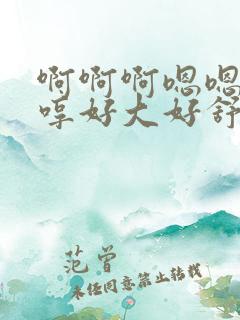 啊啊啊嗯嗯
哼好大好舒
范曾
未经同意禁止转载